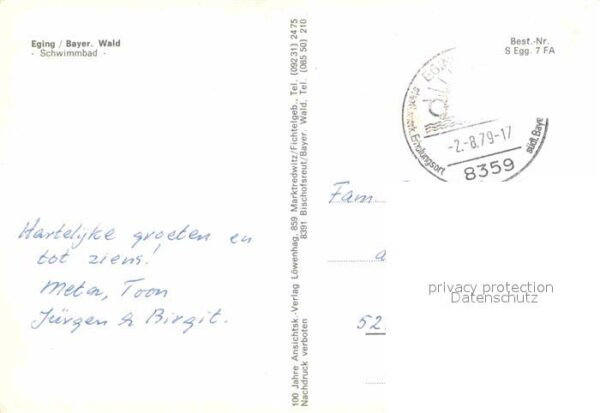 Eging / Bayer. Wald
- Schwimmbad -
Hartelijke groeten en
tot ziens!
Meta, Toon
Jürgen & Birgit.
100 Jahre Ansichtsk.-Verlag Löwenhag, 859 Marktredwitz/Fichtelgeb., Tel. (09231) 2475
8391 Bischofsreut/Bayer. Wald, Tel. (085 50) 210
Nachdruck verboten
Best.-Nr.
S Egg. 7 FA
Erholungsort
-2.-8.79-17
8359
Fam
52
privacy protection
Datenschutz